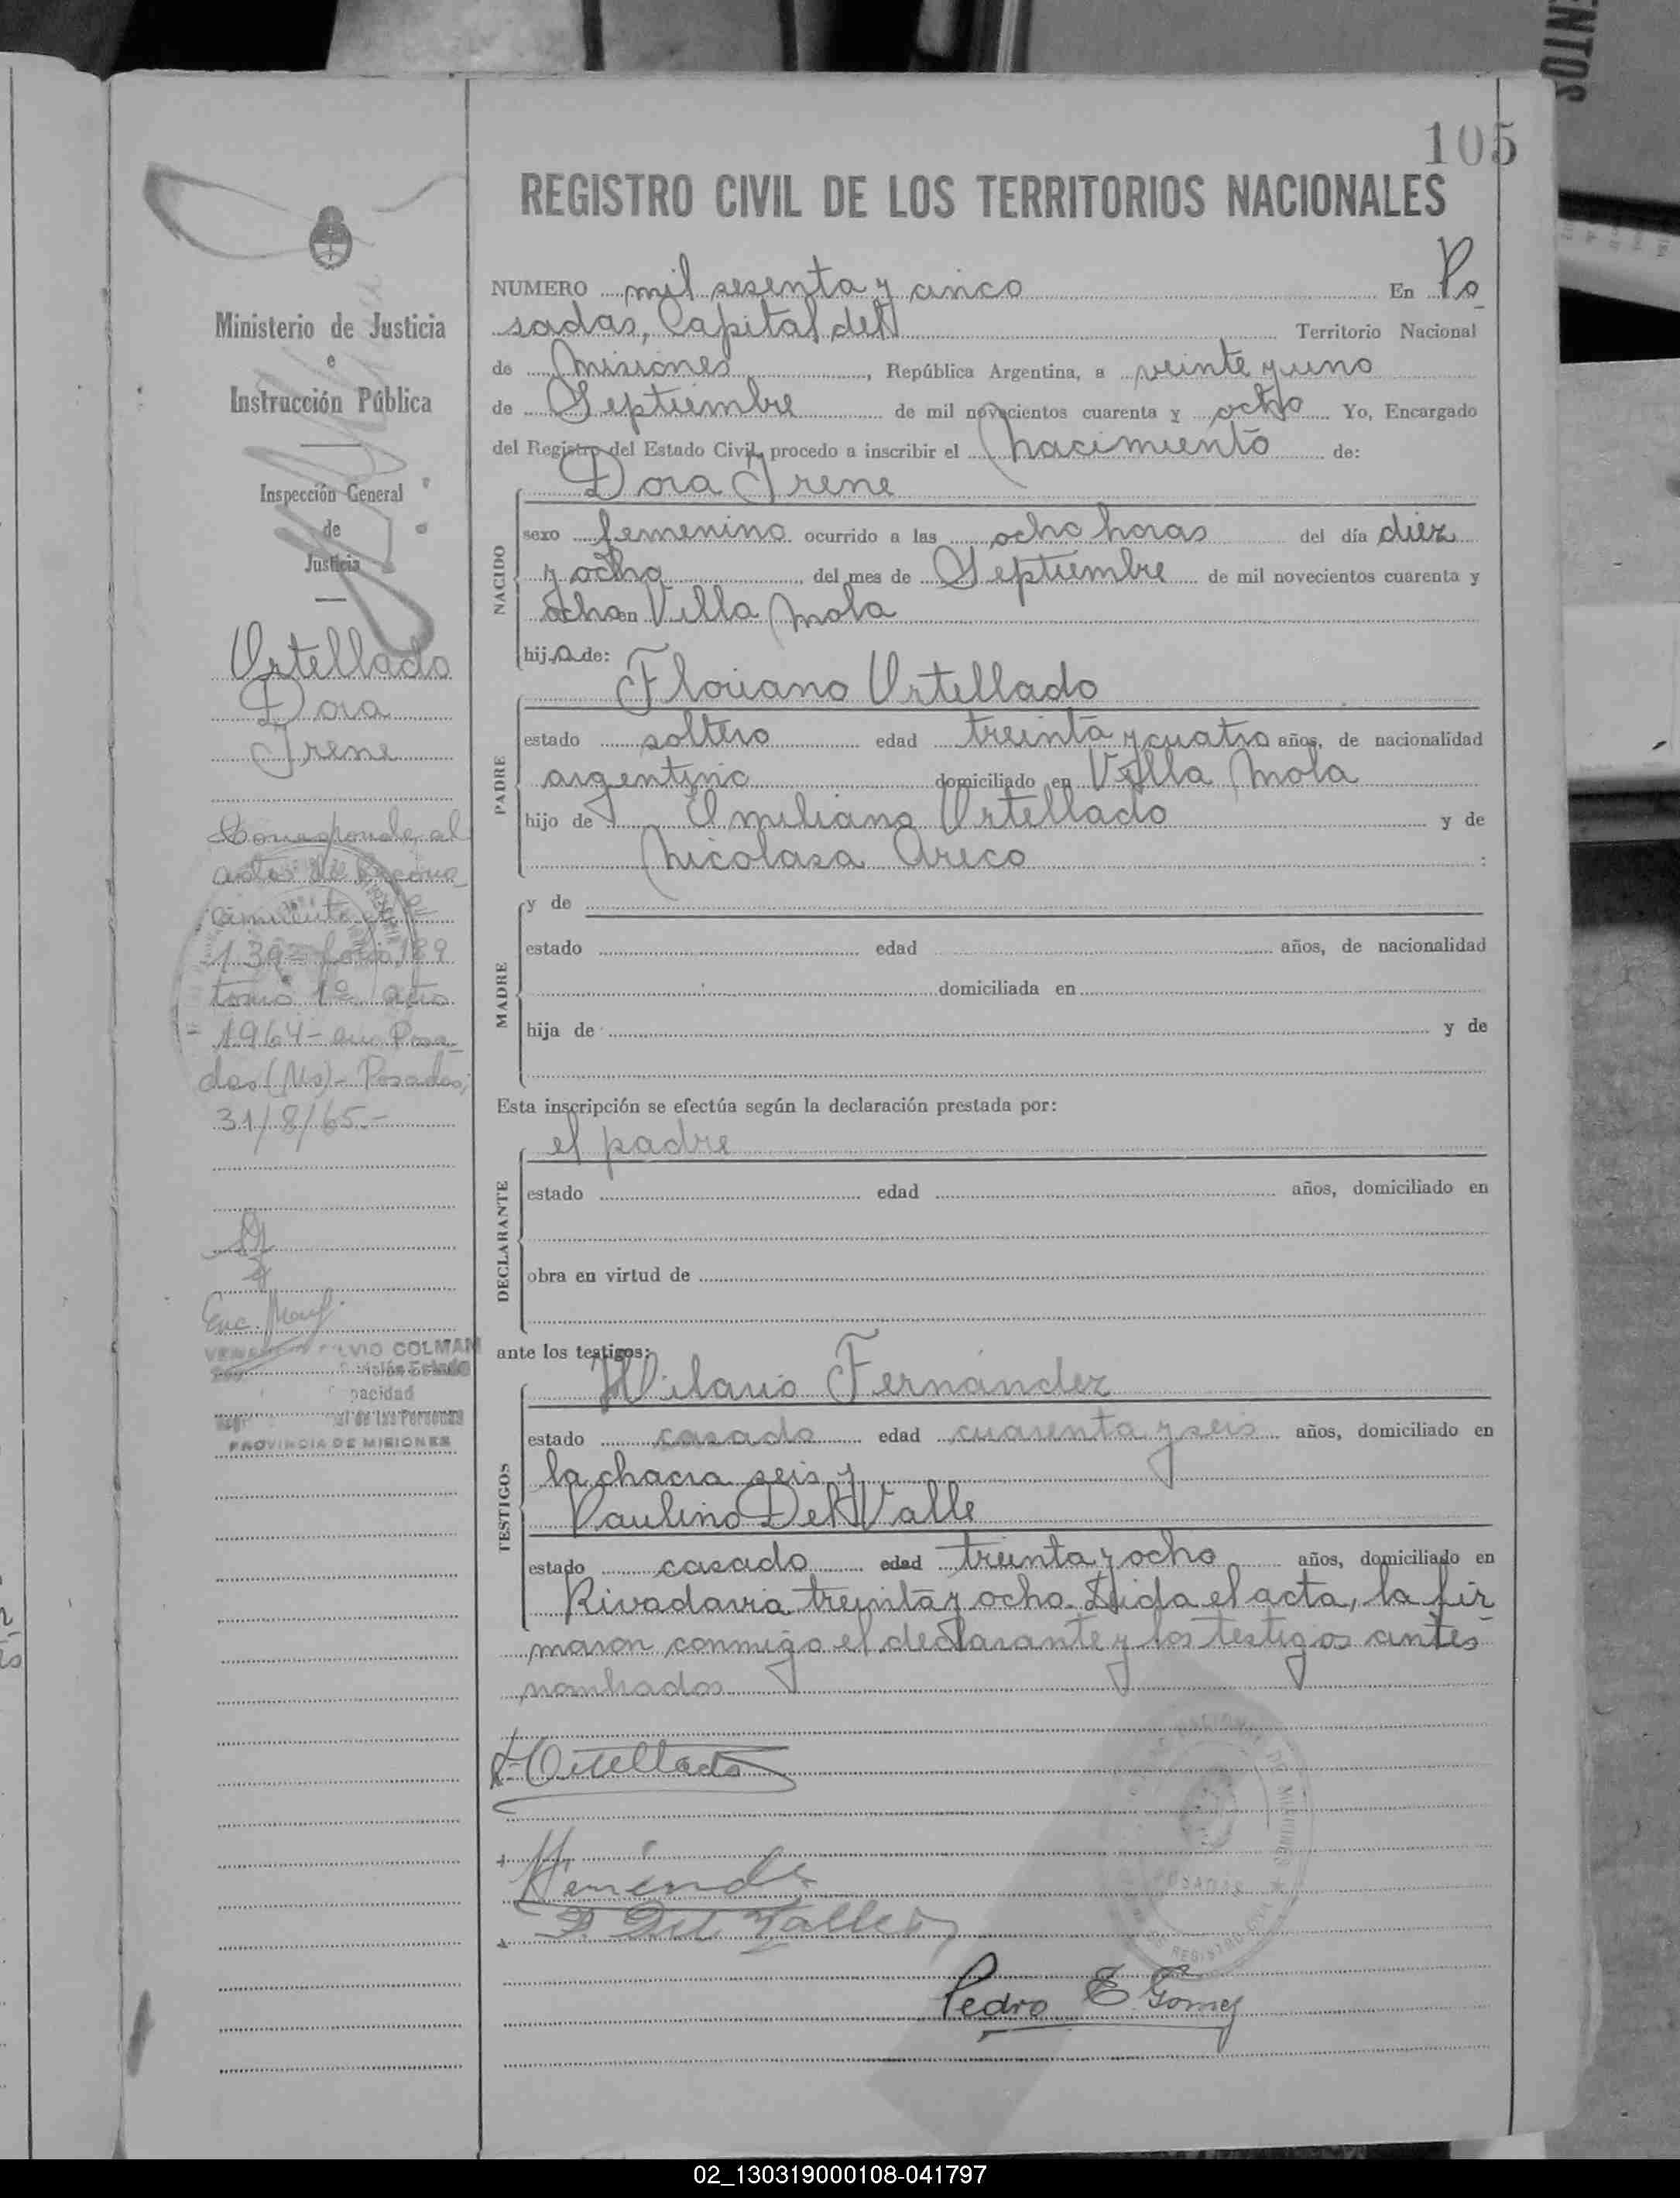 ENTOS
105
REGISTRO CIVIL DE LOS TERRITORIOS NACIONALES
Ministerio de Justicia
e
Instrucción Pública
Inspección General
de
Justicia
Urtellado
Dora
Irene
Corresponde al
acta de Recono
cimiento Nº
139 folio 189
tomo 1º año
1964 - en Posa-
das (Ms) - Posadas,
31/8/65.-
Enc.
SILVIO COLMAN
pacidad
de las Personas
PROVINCIA DE MISIONES
NUMERO mil sesenta y cinco En Po
sadas, Capital del Territorio Nacional
de Misiones, República Argentina, a veinte y uno
de Septiembre de mil novecientos cuarenta y ocho Yo, Encargado
del Registro del Estado Civil, procedo a inscribir el nacimiento de:
Dora Irene
NACIDO
sexo femenino ocurrido a las ocho horas del día diez
y ocho, del mes de Septiembre de mil novecientos cuarenta y
ocho en Villa Mola
hija de:
Floriano Urtellado
PADRE
estado soltero edad treinta y cuatro años, de nacionalidad
argentino domiciliado en Villa Mola
hijo de Emiliano Urtellado y de
Nicolasa Areco :
MADRE
y de
estado edad años, de nacionalidad
domiciliada en
hija de y de
Esta inscripción se efectúa según la declaración prestada por:
el padre
DECLARANTE
estado edad años, domiciliado en
obra en virtud de
ante los testigos:
Hilario Fernandez
TESTIGOS
estado casado edad cuarenta y seis años, domiciliado en
la chacra seis y
Paulino Del Valle
estado casado edad treinta y ocho años, domiciliado en
Rivadavia treinta y ocho. Leida el acta, la fir
maron conmigo el declarante y los testigos antes
nombrados
F. Urtellado
P. Del Valle
POSADAS
Pedro E. Gomez
02_130319000108-041797